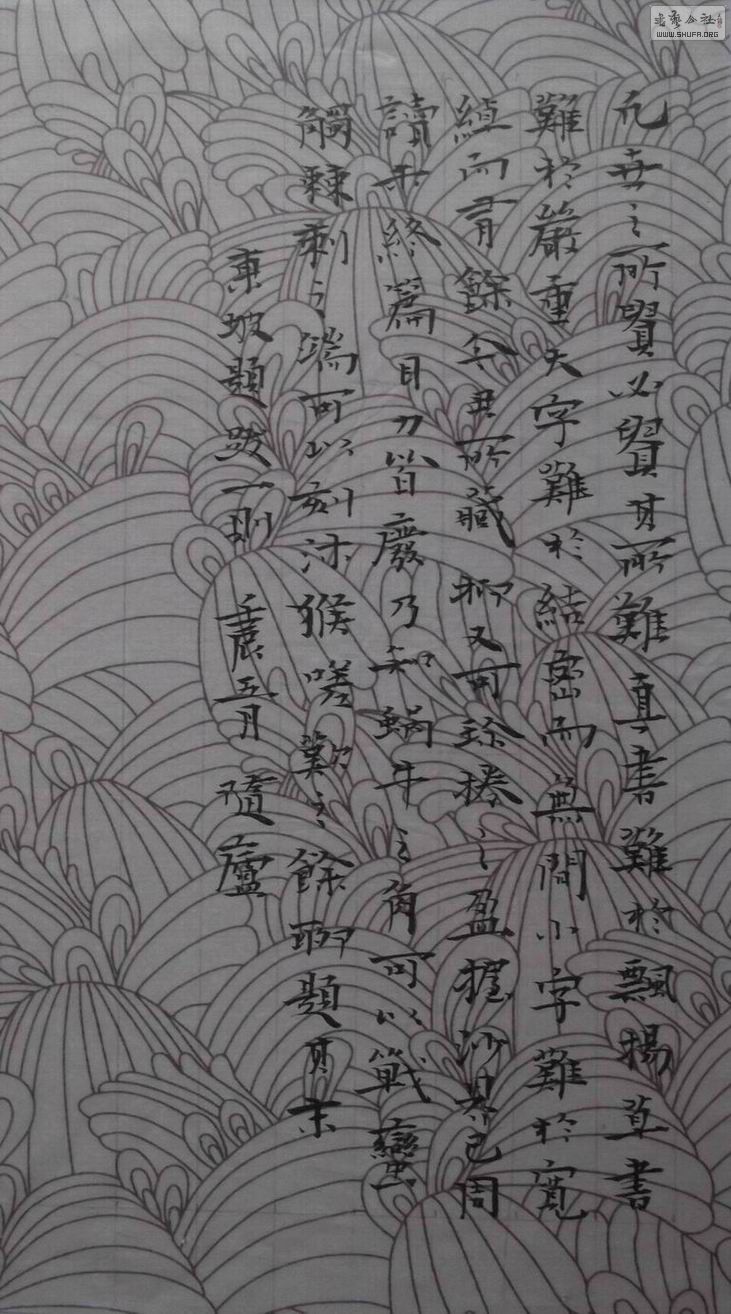 凡世之所貴必貴其所難真書難於飄揚草書
難於嚴重大字難於結密而無間小字難於寬
綽而有餘今君所藏抑又可珍捲之盈握沙界已周
讀未終篇目力皆廢乃知蝸牛之角可以戰蠻
觸棘刺之端可以刻沐猴嗟歎之餘聊題其末
東坡題跋一則 壬辰五月隨廬
書藝公社
WWW.SHUFA.ORG